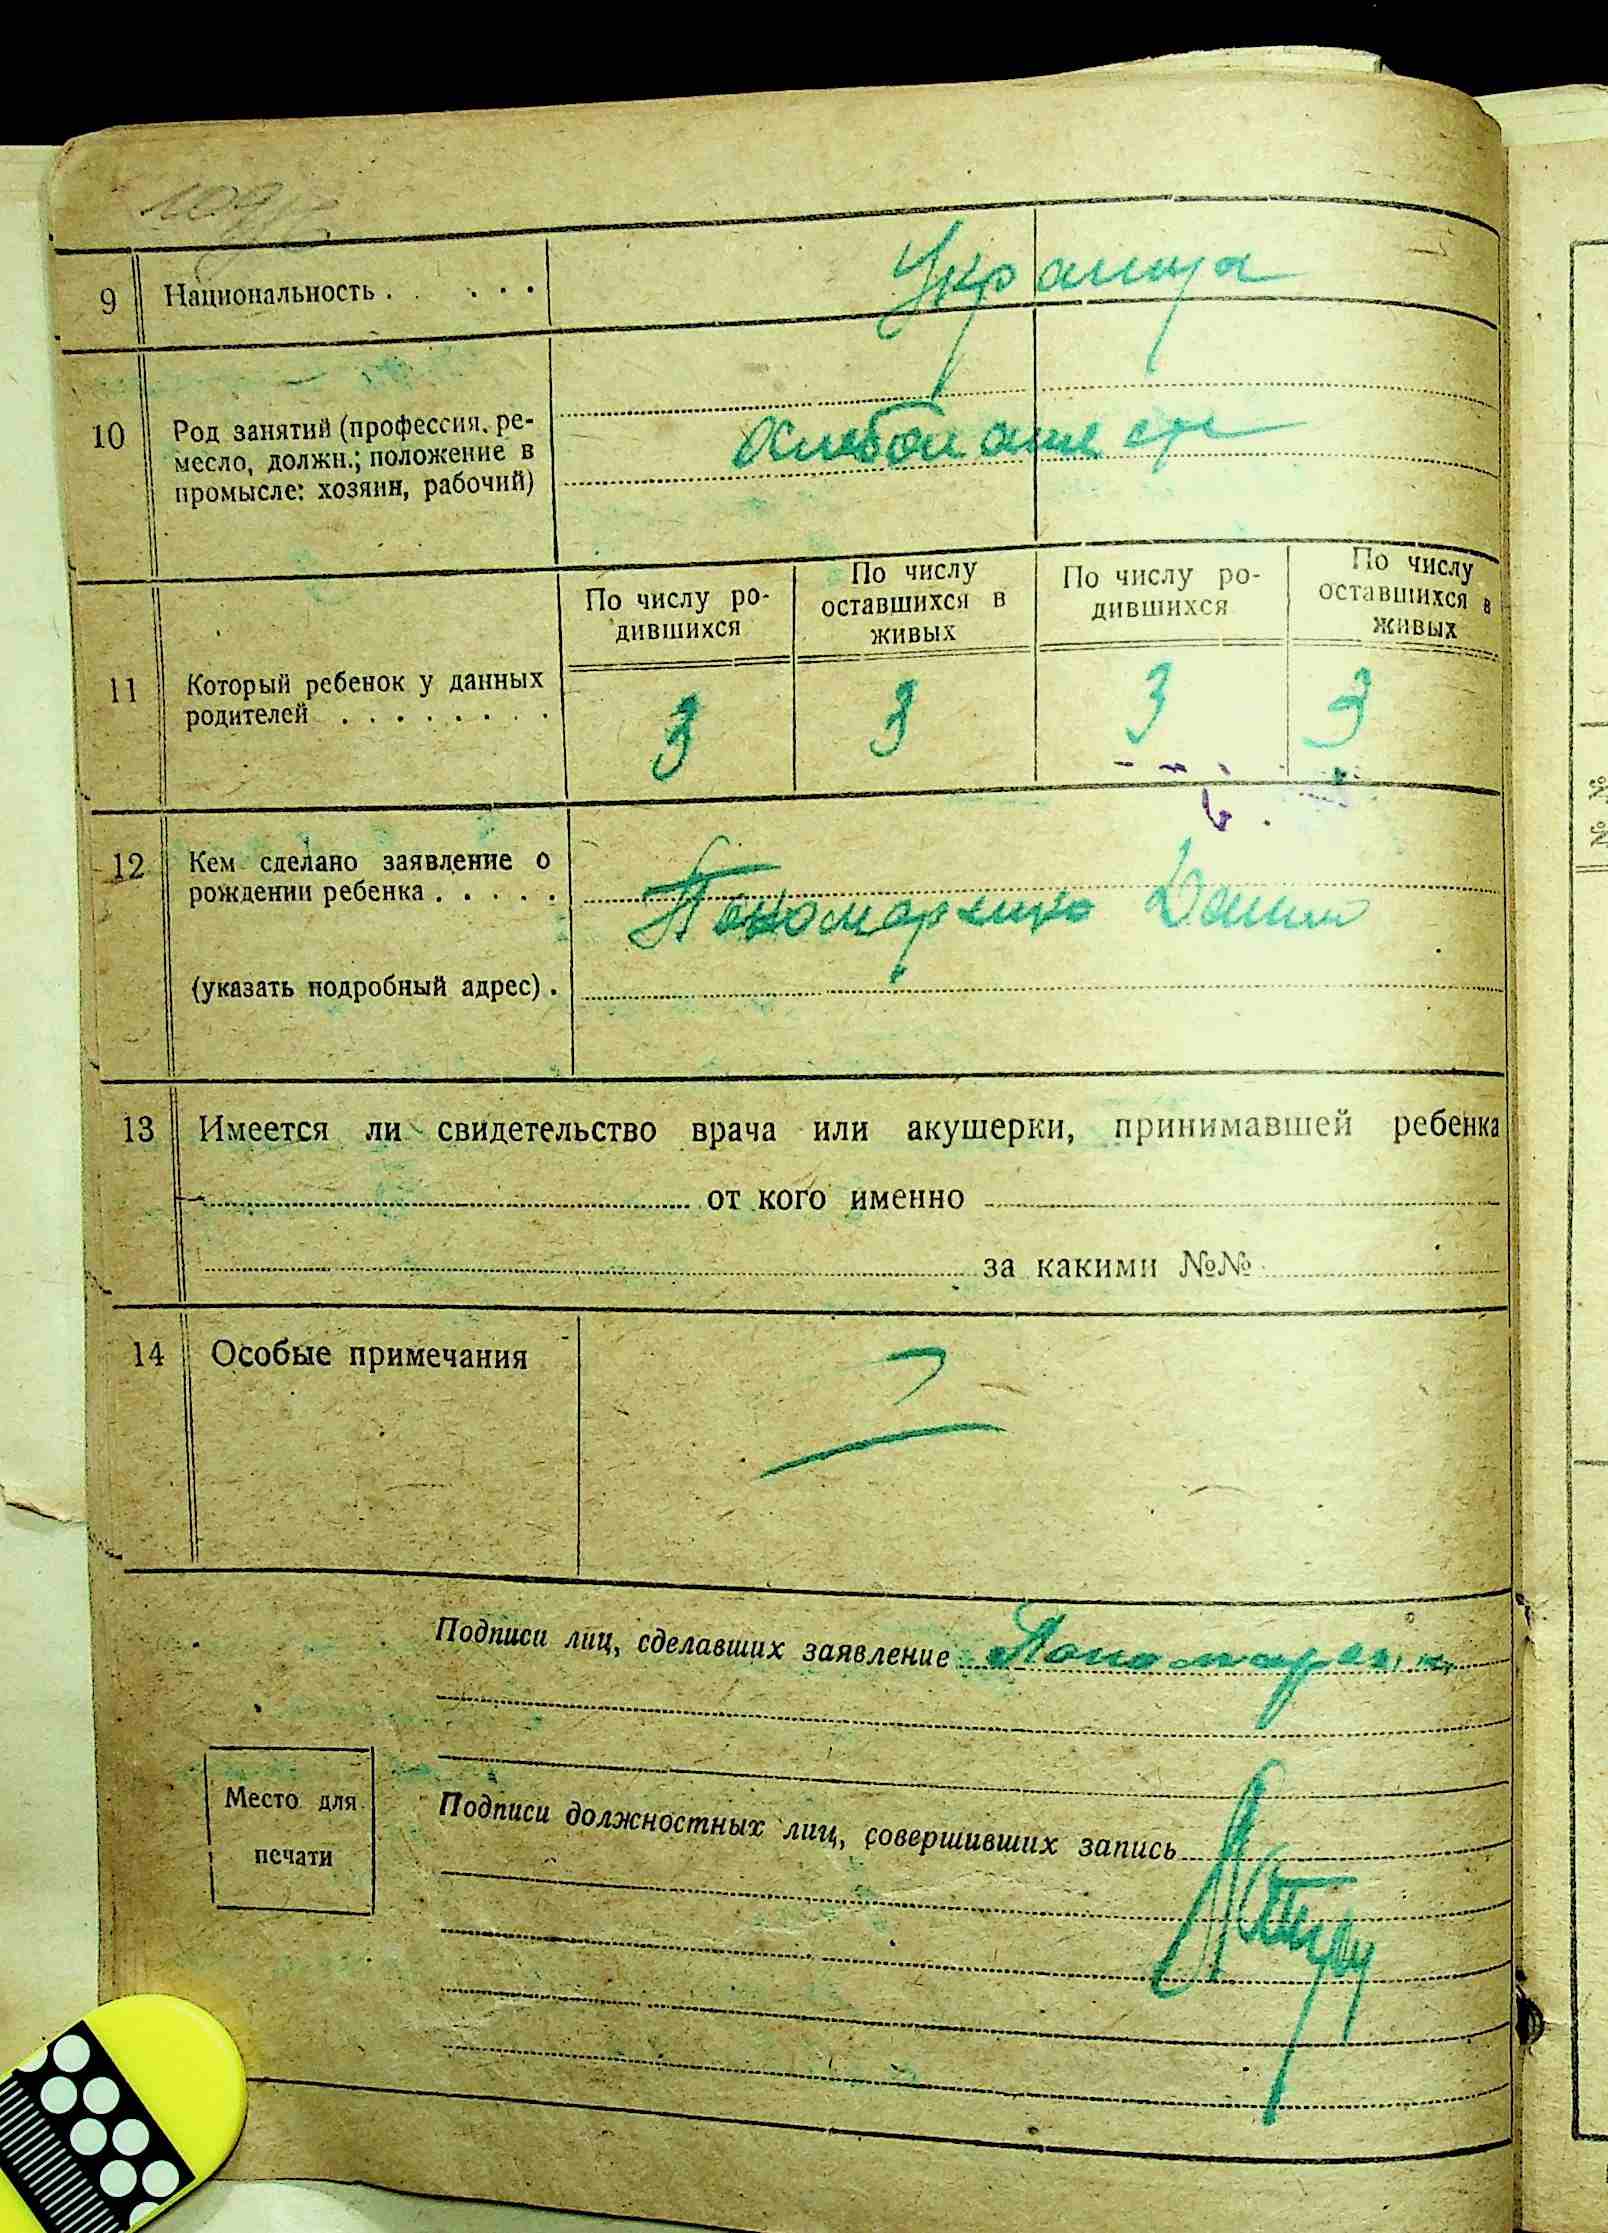 9 Национальность . . . . . .
10 Род занятий (профессия, ре-
месло, должн.; положение в
промысле: хозяин, рабочий)
По числу ро-
дившихся
По числу
оставшихся в
живых
По числу ро-
дившихся
По числу
оставшихся в
живых
11 Который ребенок у данных
родителей . . . . . . . .
3 3 3 3
12 Кем сделано заявление о
рождении ребенка . . . . .
Пономаренко Данило
(указать подробный адрес) .
13 Имеется ли свидетельство врача или акушерки, принимавшей ребенка
от кого именно
за какими №№
14 Особые примечания
Подписи лиц, сделавших заявление Пономаренко
Место для
печати
Подписи должностных лиц, совершивших запись
№№